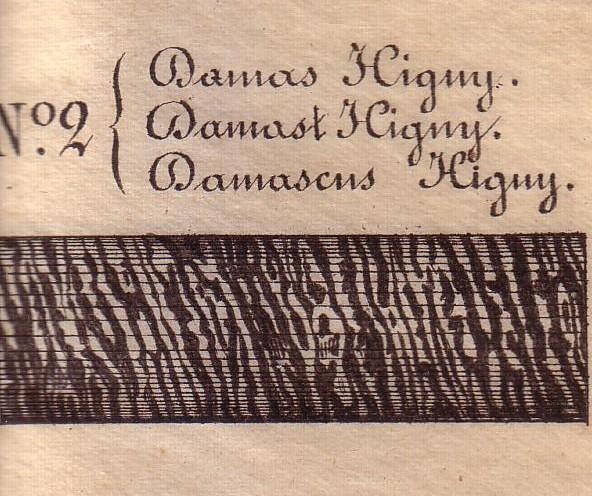 Nº.2
Damas Higny.
Damast Higny.
Damascus Higny.